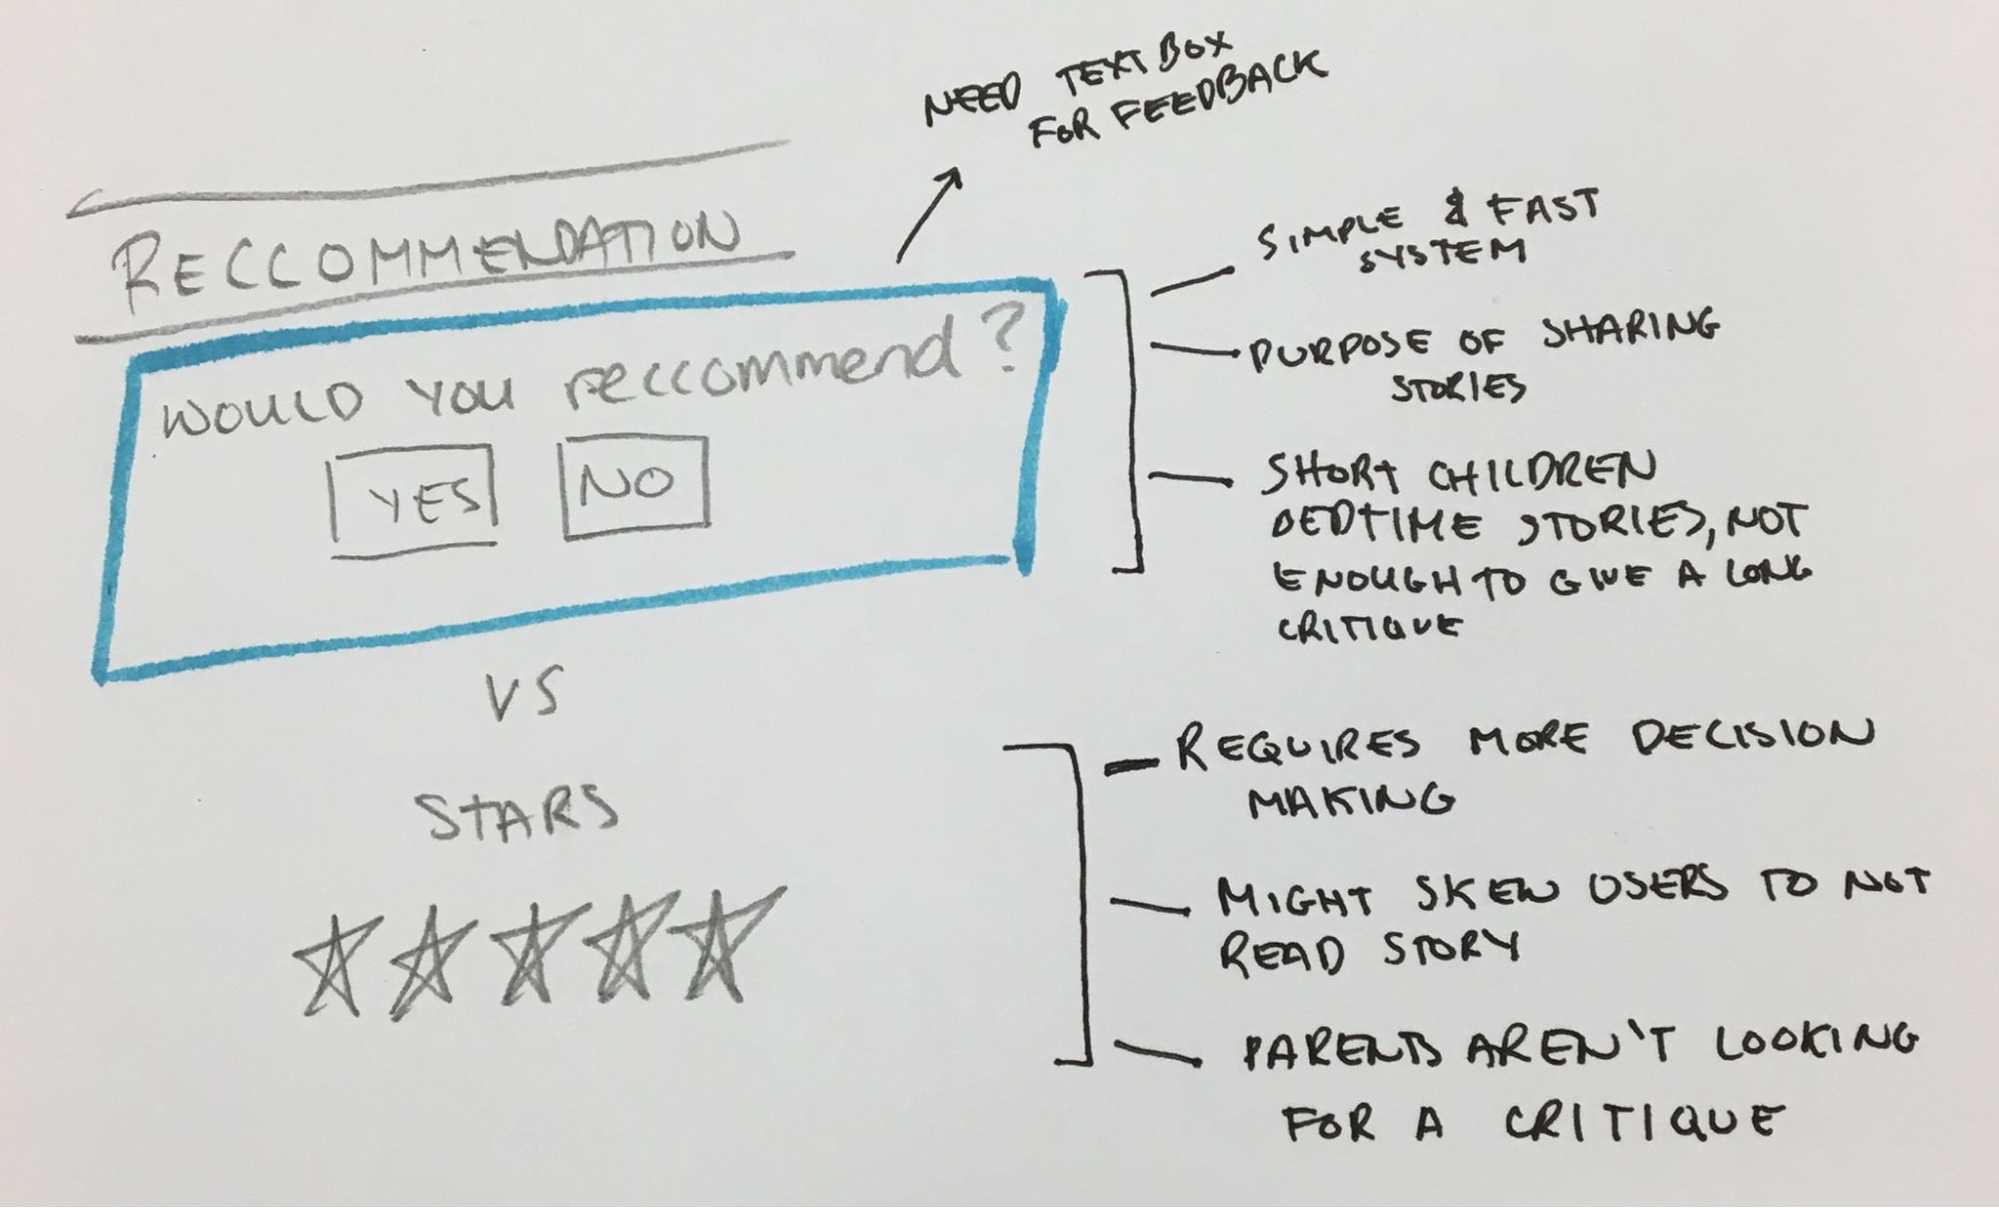 NEED TEXT BOX
FOR FEEDBACK
RECCOMMENDATION
WOULD YOU reccommend?
YES NO
SIMPLE & FAST
SYSTEM
PURPOSE OF SHARING
STORIES
SHORT CHILDREN
BEDTIME STORIES, NOT
ENOUGH TO GIVE A LONG
CRITIQUE
VS
STARS
REQUIRES MORE DECISION
MAKING
MIGHT SKEW USERS TO NOT
READ STORY
PARENTS AREN'T LOOKING
FOR A CRITIQUE